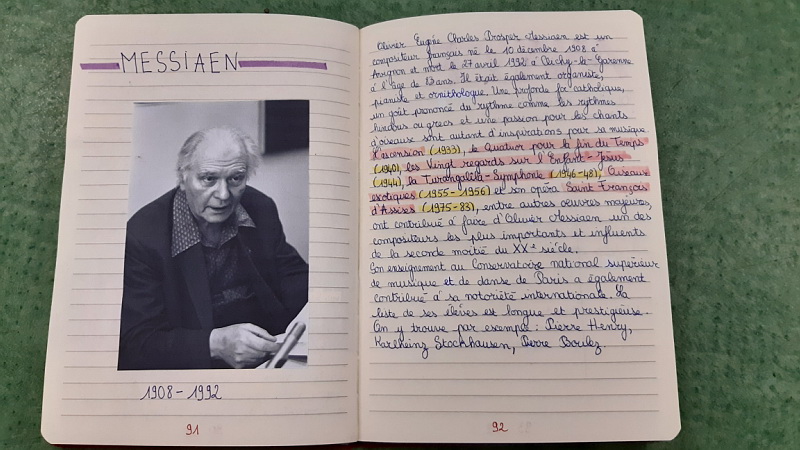 MESSIAEN
1908 - 1992
91
Olivier Eugène Charles Prosper Messiaen est un
compositeur français né le 10 décembre 1908 à
Avignon et mort le 27 avril 1992 à Clichy-la-Garenne
à l'âge de 83 ans. Il était également organiste,
pianiste et ornithologue. Une profonde foi catholique,
un goût prononcé du rythme comme les rythmes
hindous ou grecs et une passion pour les chants
d'oiseaux sont autant d'inspirations pour sa musique.
L'ascension (1933), le Quatuor pour la fin du Temps
(1940), les Vingt regards sur l'Enfant-Jésus
(1944), la Turangalîla-Symphonie (1946-48), Oiseaux
exotiques (1955-1956) et son opéra Saint François
d'Assises (1975-83), entre autres oeuvres majeures,
ont contribué à faire d'Olivier Messiaen un des
compositeurs les plus importants et influents
de la seconde moitié du XXe siècle.
Son enseignement au Conservatoire national supérieur
de musique et de danse de Paris a également
contribué à sa notoriété internationale. La
liste de ses élèves est longue et prestigieuse.
On y trouve par exemple : Pierre Henry,
Karlheinz Stockhausen, Pierre Boulez.
92